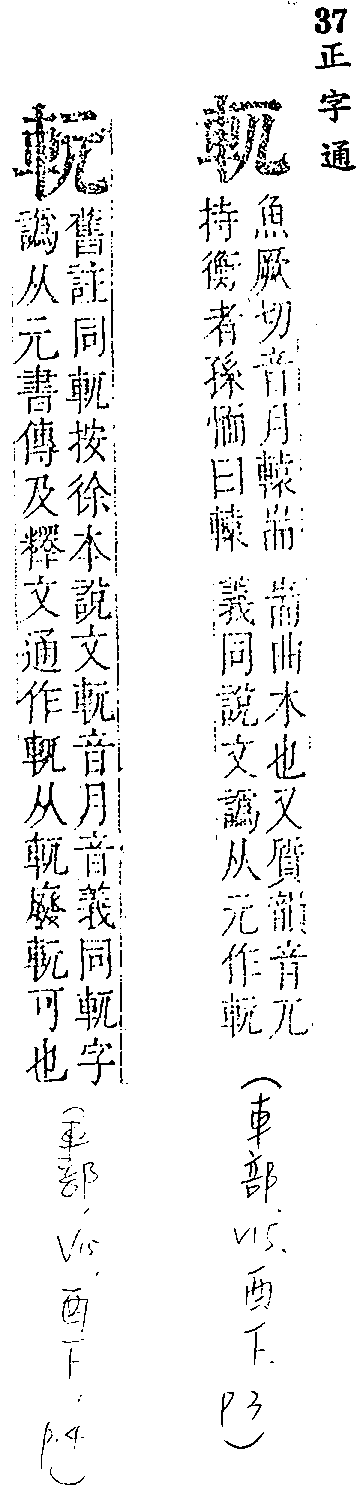 37 正字通
軏
魚厥切音月轅耑
持衡者孫愐曰轅
耑曲木也又質韻音兀
義同說文譌从元作軏
(車部, V15, 酉下, P3)
舊註同軏按徐本說文軏音月音義同軏字
譌从元書傳及釋文通作軏从軏廢軏可也
(車部, V15, 酉下, p.4)